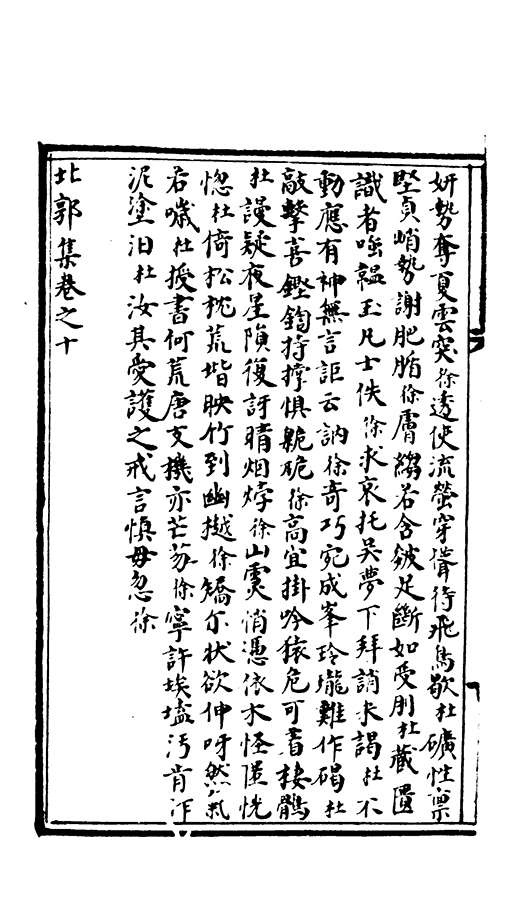 妍勢奪夏雲突徐透使流螢穿聳待飛鳥歇杜礦性稟
堅貞峭勢謝肥腯徐膚縐若含皴足斷如受刖杜藏匱
識者嗤韞玉凡士佚徐求哀托吳夢下拜誚米謁杜不
動應有神無言詎云訥徐奇巧宛成峯玲瓏難作碣杜
敲擊喜鏗鍧持撑惧臲卼徐高宜掛吟猿危可晝棲鶻
杜謾疑夜星隕復訝晴烟㶿徐山䨥悄憑依木怪𢥠恍
惚杜倚松枕荒堦映竹到幽樾徐矯尔状欲伸呀然氣
若噦杜授書何荒唐支機亦芒芴徐寧許埃𡏖汚肯泎
泥塗汩杜汝其愛護之戒言慎毋忽徐
北郭集卷之十